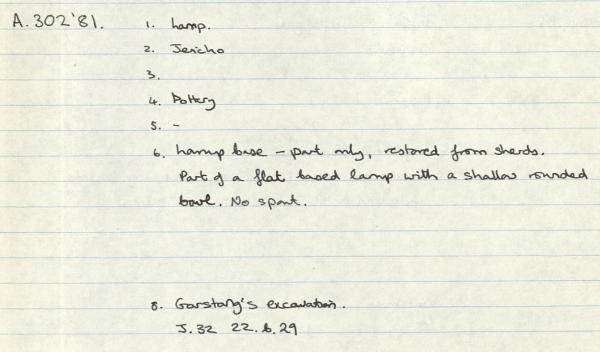 A.302'81. 1. Lamp.
2. Jericho
3.
4. Pottery
5. -
6. Lamp base - part only, restored from sherds.
Part of a flat based lamp with a shallow rounded
bowl. No spout.
8. Garstang's excavation.
J.32 22.6.29